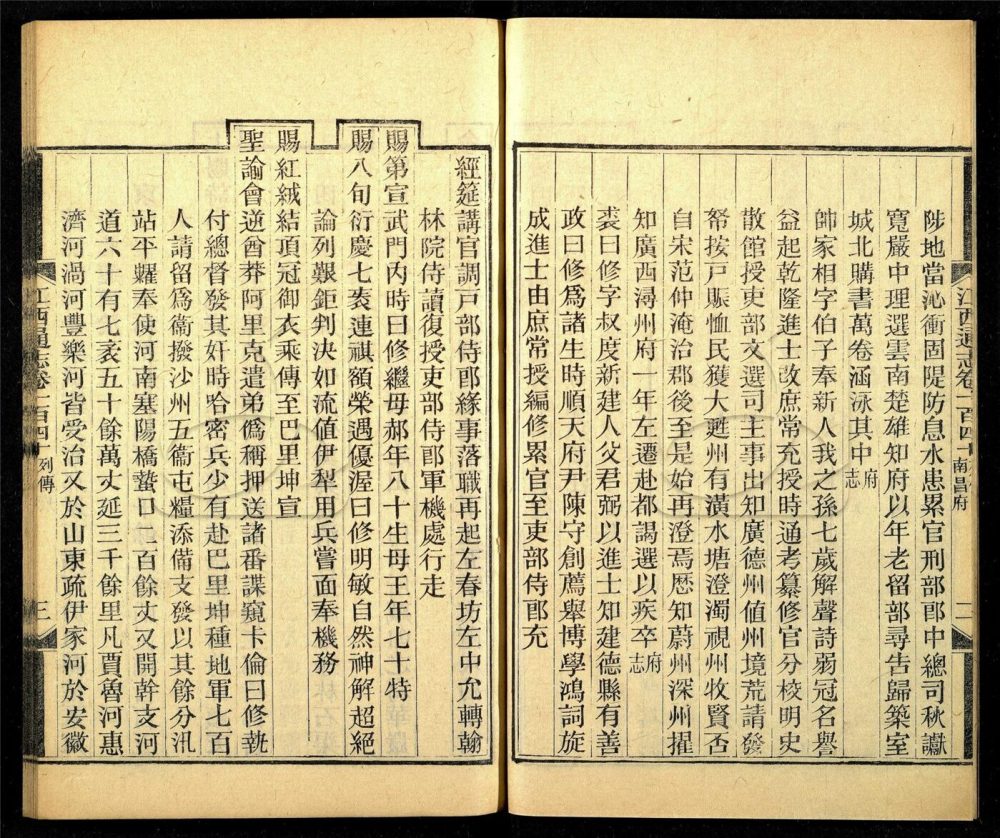 陟地當沁衝固隄防息水患累官刑部郎中總司秋讞
寬嚴中理選雲南楚雄知府以年老留部尋告歸築室
城北購書萬卷涵泳其中府志
帥家相字伯子奉新人我之孫七歲解聲詩弱冠名譽
益起乾隆進士改庶常充授時通考纂修官分校明史
散館授吏部文選司主事出知廣德州值州境荒請發
帑按戶賑恤民獲大甦州有潢水塘澄濁視州牧賢否
自宋范仲淹治郡後至是始再澄焉歴知蔚州深州擢
知廣西潯州府一年左遷赴都謁選以疾卒府志
裘曰修字叔度新建人父君弼以進士知建德縣有善
政曰修爲諸生時順天府尹陳守創薦舉博學鴻詞旋
成進士由庶常授編修累官至吏部侍郎充
江西通志卷一百四十
南昌府
二
經筵講官調戸部侍郎緣事落職再起左春坊左中允轉翰
林院侍讀復授吏部侍郎軍機處行走
賜第宣武門內時曰修繼母郝年八十生母王年七十特
賜八旬衍慶七袠連祺額榮遇優渥曰修明敏自然神解超絕
論列艱鉅判決如流值伊犁用兵嘗面奉機務
賜紅絨結頂冠御衣乘傳至巴里坤宣
聖諭會逆酋莽阿里克遣弟僞稱押送諸番諜窺卡倫曰修執
付總督發其奸時哈密兵少有赴巴里坤種地軍七百
人請留爲衞撥沙州五衞屯糧添備支發以其餘分汛
站平糶奉使河南塞陽橋蟄口二百餘丈又開幹支河
道六十有七袤五十餘萬丈延三千餘里凡賈魯河惠
濟河渦河豐樂河皆受治又於山東疏伊家河於安徽
江西通志卷一百四十
列傳
三